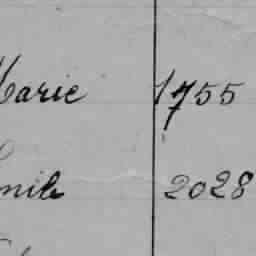 Marie 1755
Emile 2028